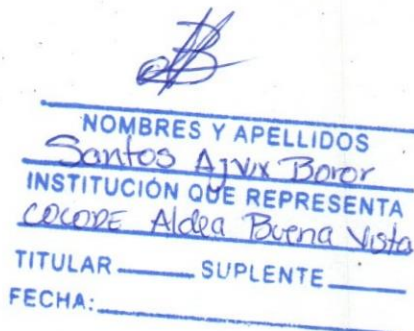 NOMBRES Y APELLIDOS
Santos Ajvix Boror
INSTITUCIÓN QUE REPRESENTA
COCODE Aldea Buena Vista
TITULAR SUPLENTE
FECHA: